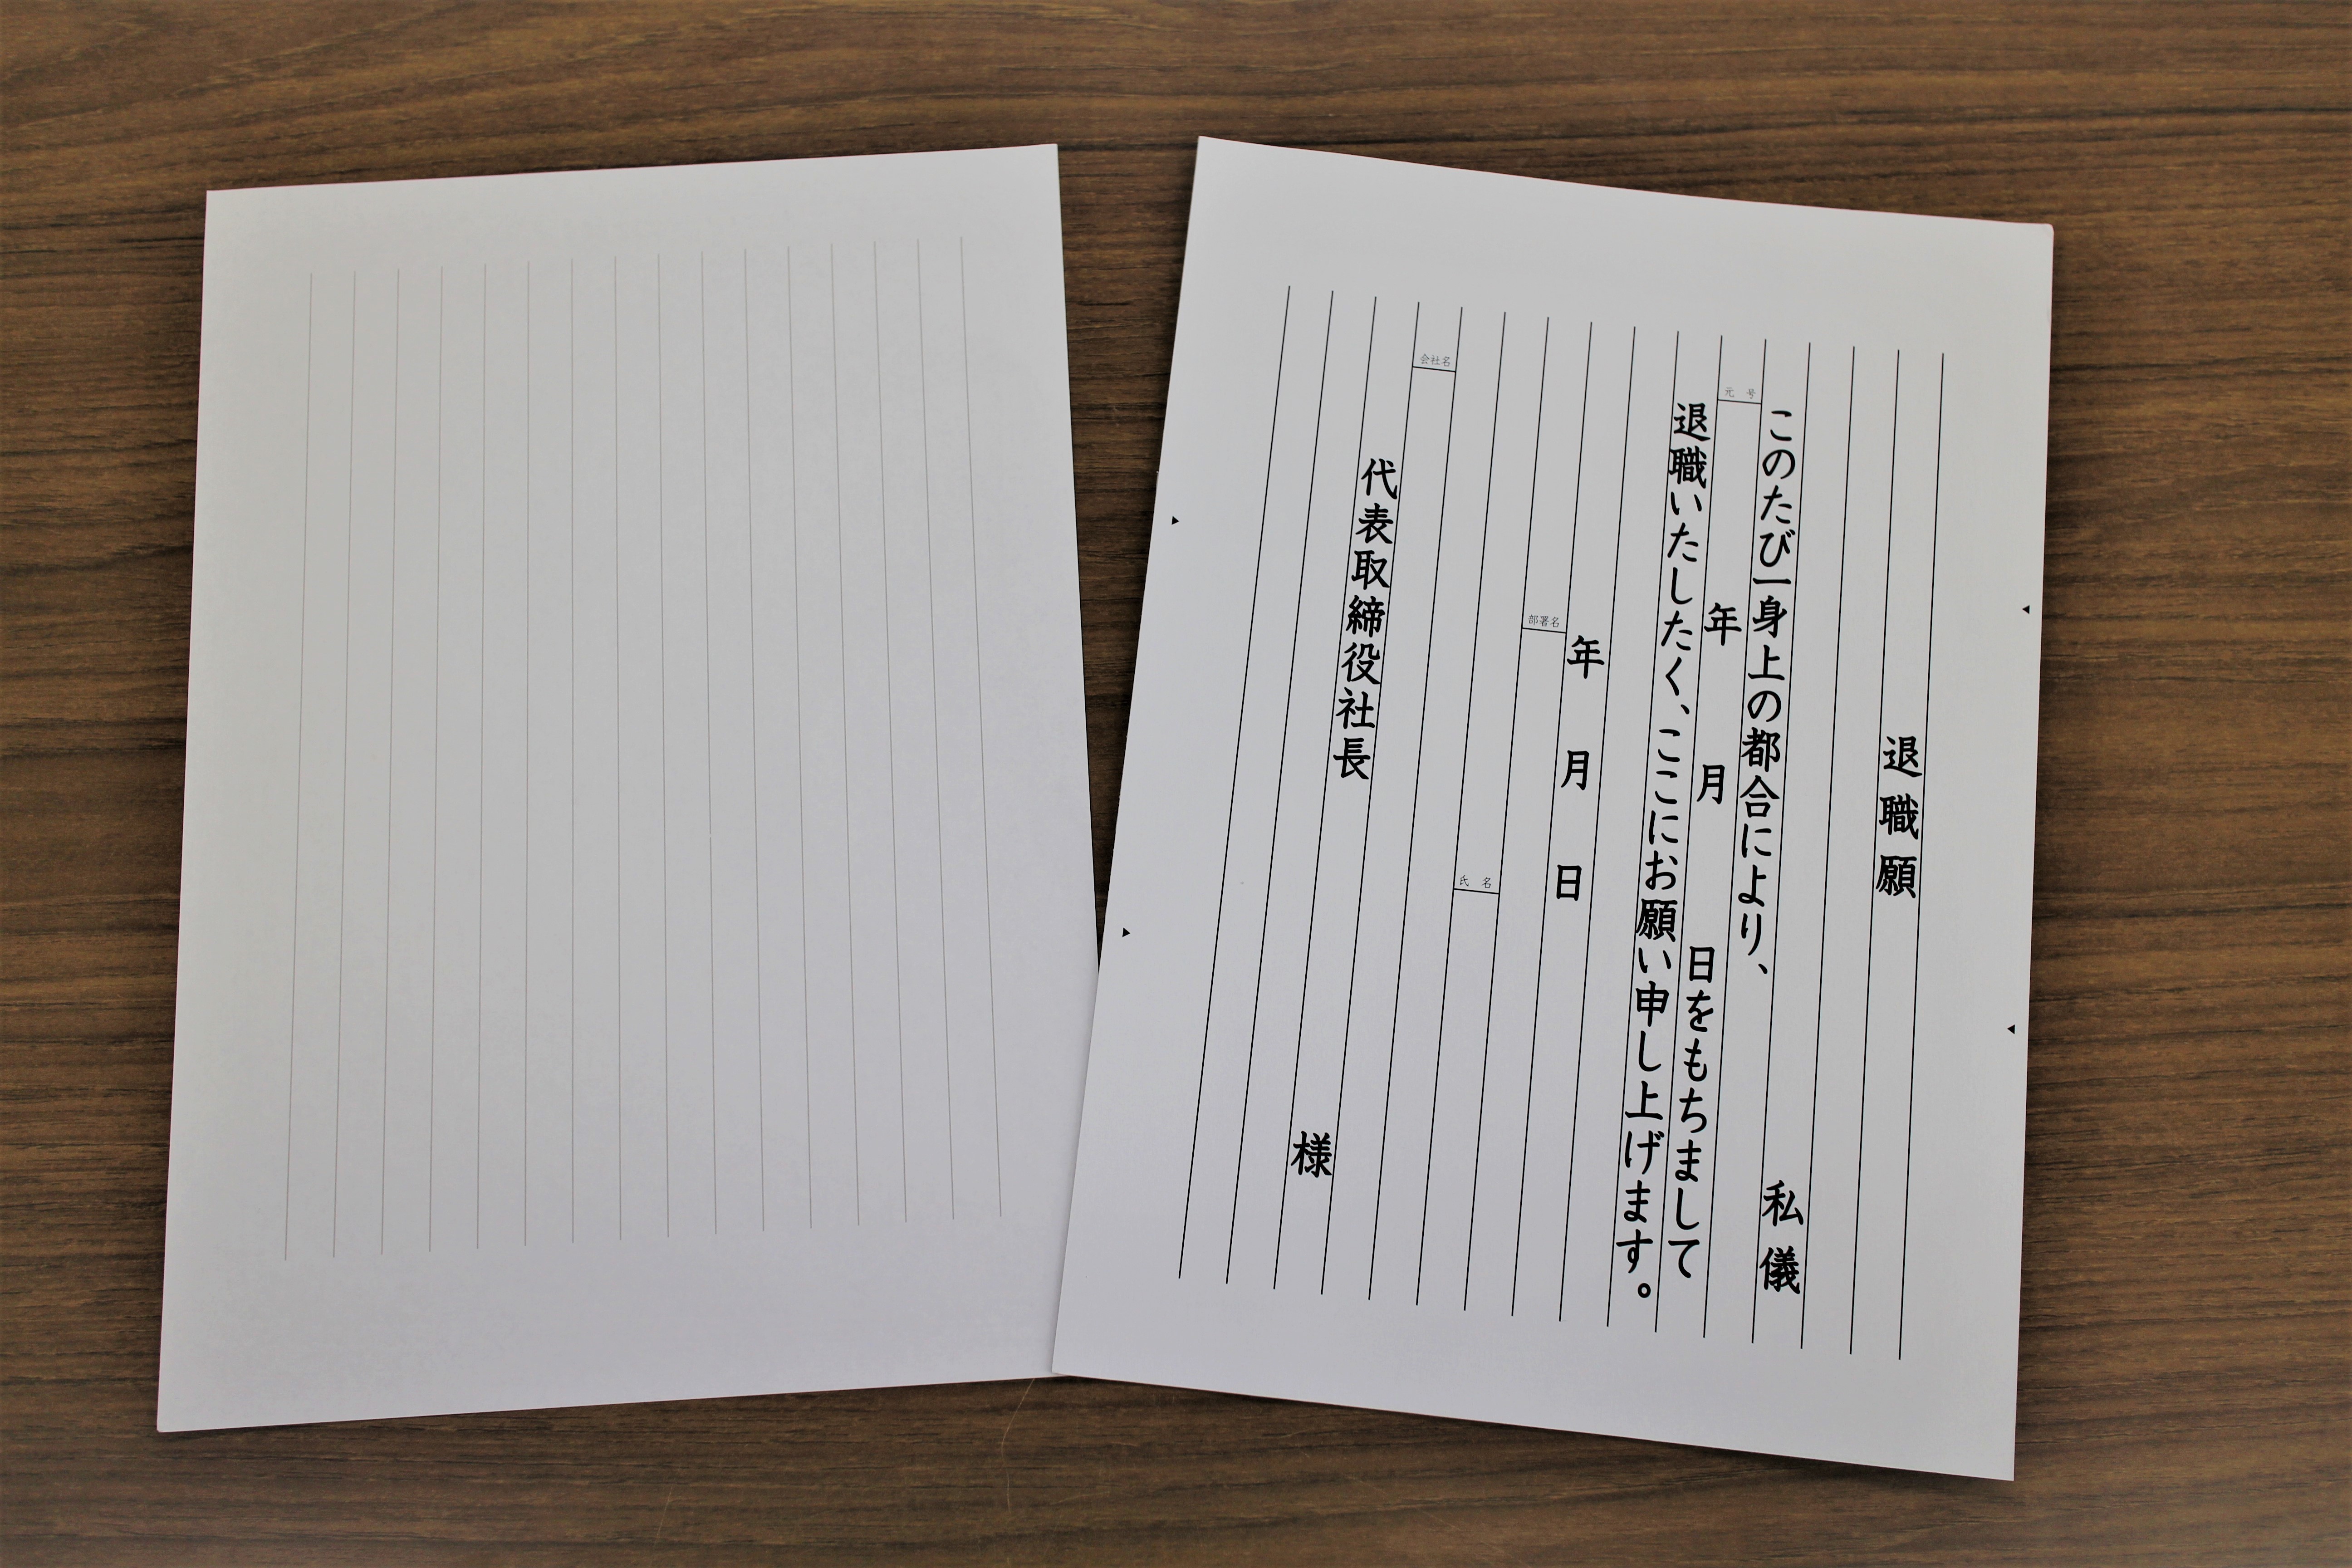 退職願
私儀
このたび一身上の都合により、
元号 年 月 日をもちまして
退職いたしたく、ここにお願い申し上げます。
年 月 日
部署名
氏名
会社名
代表取締役社長
様